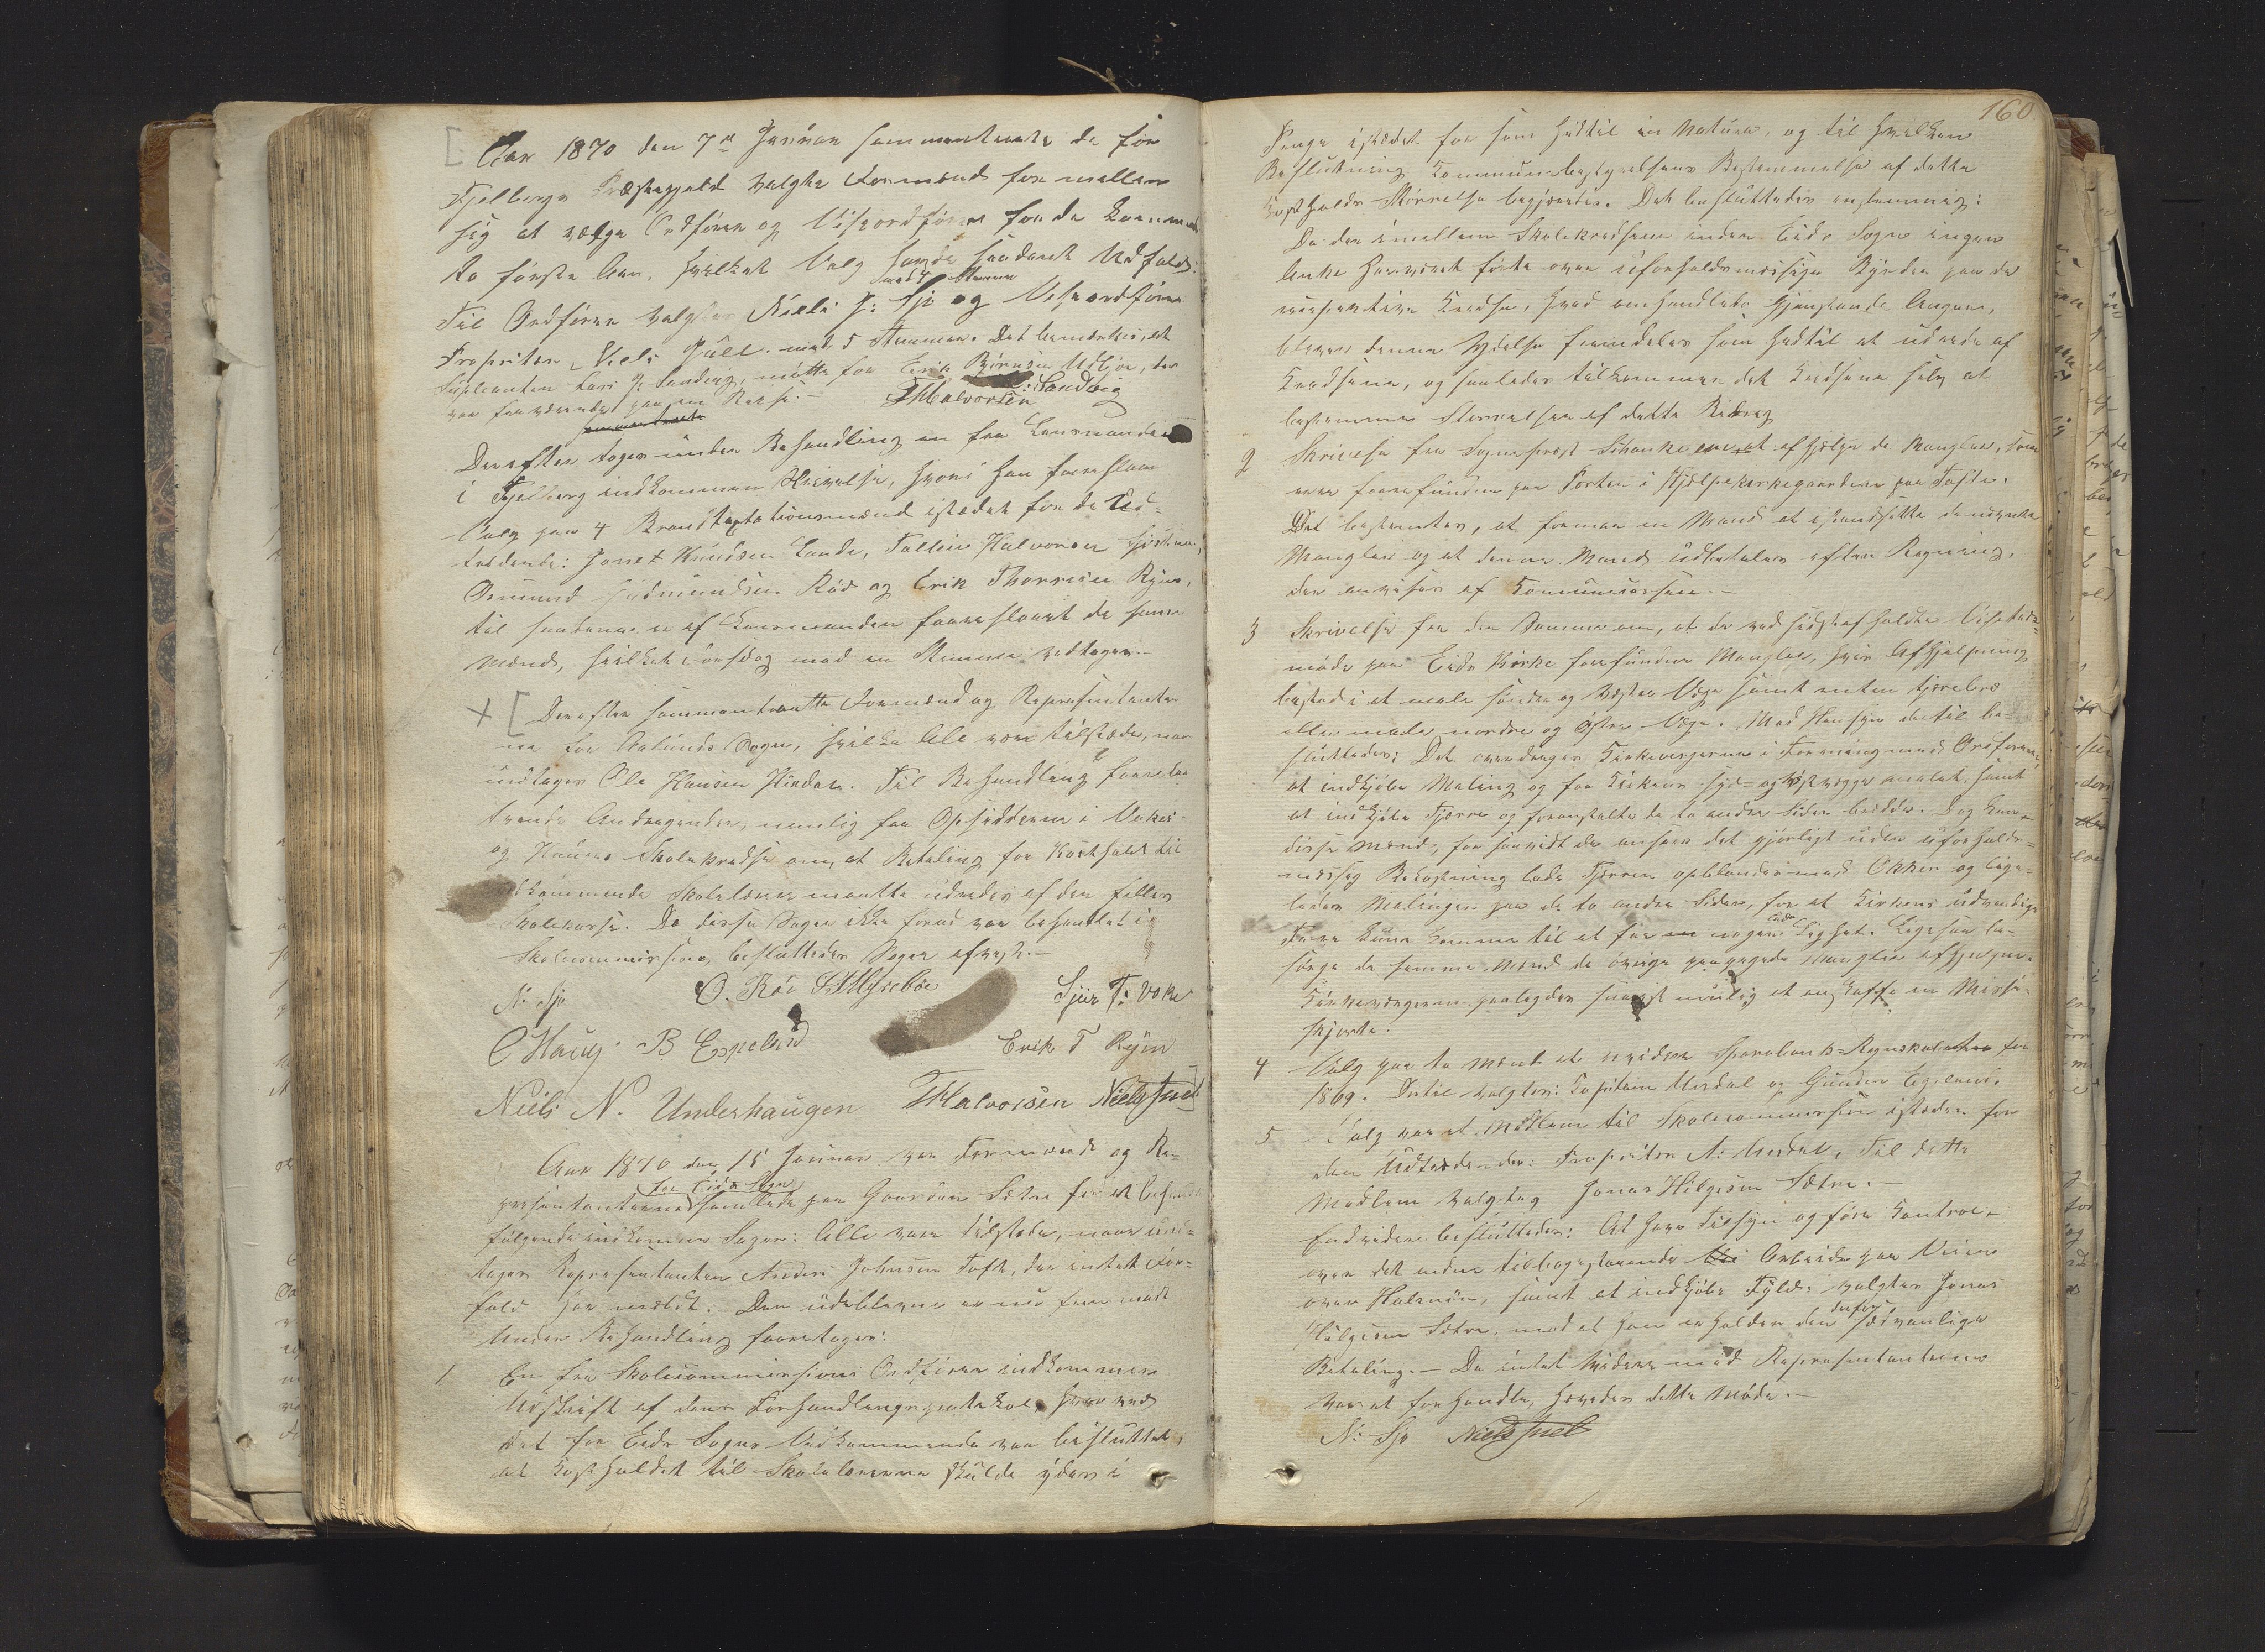 Aar 1870 den 7de Januar sammentraadte de for
Fjelbergs Præstegjeld valgte Formænd for mellem
sig at vælge Ordfører og Viseordfører for de kommen-
de første Aar, hvilket Valg havde saadant Udfald:
med 4 Stemmer
Til Ordfører valgtes Niels J: Sjo og Viseordfører
Propritær Niels Juell med 5 Stemmer. Det bemærkes, at
Supleanten Lars J. Sandvig, mødte for Erik Børnsen Udbjoe, der
var fraværende paa en Reise.- THalvorsen Sandvig
Derefter toges under Behandling en fra Lensmanden
i Fjelberg indkommen Skrivelse, hvori han foreslaar
Valg paa 4 Brandtaxtationsmænd istedet for de Ud-
trædende: Jone Knudsen Lande, Tollew Halvorsen
Osmund Gudmundsen Rød og Erik Thorrisen Ryen,
til saadanne er af Lensmanden foreslaaet de samme
Mænd, hvilket Forslag mod en Stemme vedtoges.-
Derefter sammentraadte Formænd og Repræsentanter
ne for Ølunds Sogn, hvilke Alle vare tilstæde, naar
undtages Ole Hansen Hindar. Til Behandling foretoges
tvende Andragender, nemlig fra Opsidderne i Vakes-
og Hauges Skolekredse om, at Betaling for Kostholdt til
vedkommende Skolelærer maatte udredes af den felles
Skolekasse. Da disse Sager ikke forud var behandlet i
Skolecommissionen, besluttedes Sagen afvist.-
N. Sjo O. Röe SHMyrebøe Sjur T: Vake
C Haug B Espeland Erik T Ryen
Niels N. Underhaugen THalvorsen Niels Juel
Aar 1870 den 15 Januar var Formænd og Re-
for Eids Sogn
presentanterne samlede paa Gaarden Sætre for at behandle
følgende indkomne Sager: Alle vare tilstede, naar und-
tages Repræsentanten Anders Johnsen Toft, der intet For-
fald har meldt.- Den udeblevne er nu frem mødt
Under Behandling foretoges:
1 En fra Skolecommissionens Ordfører indkommen
Udskrift af dens Forhandlingsprotokol, hvorved
det for Eids Sogns Vedkommende var besluttet,
at Kostholdet til Skolelærerne skulde ydes i
160.
Penge istedet for som hidtil in Natura, og til hvilken
Beslutning Kommunebestyrelsens Bestemmelse af dette
Kostholds Størrelse begjærtes. Det besluttedes enstemmig:
Da der imellem Skolekredsene inden Eids Sogn ingen
Anke har været ført over uforholdsmæssige Byrder paa de
respective Kredse, hvad omhandlede Gjenstande Angaar,
bliver denne Ydelse fremdeles som hidtil at udrede af
Kredsene, og saaledes tilkommer det Kredsene selv at
bestemme Størrelsen af dette Bidrag
2 Skrivelse fra Sognepræst Schanke om, at afhjelpe de Mangler, som
var forefunden paa Porten i Hjelpekirkegaarden paa Tofte.
Det bestemtes, at formaa en Mand at istandsætte de nævnte
Mangler og at denne Mand udbetales efter Regning,
der anvises af Communecassen.-
3 Skrivelse fra den Samme om, at der ved sidst afholdte Visitats-
møde paa Eids Kirke forefunden Mangler, hvis Afhjælpning
bestod i at male søndre og Vestre Væg samt enten tjærebræ
eller male nordre og østre Væg. Med Hensyn dertil be-
sluttedes: Det overdrages Kirkeværgerne i Forening med Ordføreren,
at indkjøbe Maling og faa Kirkens syd- og Vestvægge malet samt
at indkjøbe Tjærre og foranstalte de to andre Sider brædde. Dog kan
disse Mænd, for saavidt de anseer det gjørligt uden uforholds-
mæssig Bekostning lade Tjærren opblandes med Okker og lige-
ledes Malingen paa de to andre Sider, for at Kirkens udvendige
Farve kunde komme til at faa nogen Lighed. Ligesaa be-
sørge de samme Mænd de øvrige paapegede Mangler afhjulpne.
Kirkeværgerne paalegges snarest mulig at anskaffe en Messe-
skjorte.
4 Valg paa to Mænd at revidere Sparebank-Regnskabet for
1869. Dertil valgtes: Kapitain Undal og Gunder Egeland.
5 Valg paa et Medlem til Skolecommissionen istedet for
den Udtrædende: Proprietær N: Undal, Til dette
Medlem valgtes Jonas Helgesen Sætre.-
Endvidere besluttedes: At have Tilsyn og føre Kontrol
over det endnu tilbagestaaende Arbeide paa Veien
over Halsnøen, samt at indkjøbe Fyld: valgtes Jonas
Helgesen Sætre, mod at han erholder den derfor sædvanlige
Betaling.- Da intet videre med Repræsentanterne
var at forhandle, hævedes dette Møde.-
N: Sjo Niels Juel